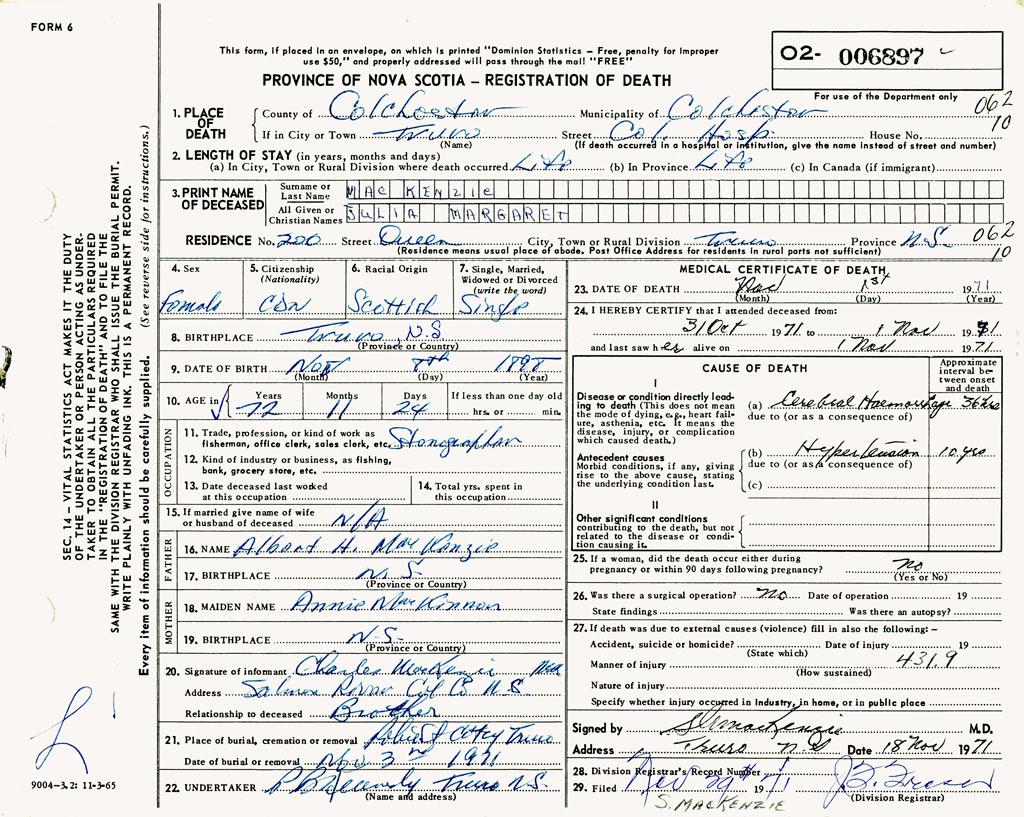 FORM 6
This form, if placed in an envelope, on which is printed "Dominion Statistics – Free, penalty for improper
use $50," and properly addressed will pass through the mail "FREE"
02- 006897
PROVINCE OF NOVA SCOTIA – REGISTRATION OF DEATH
For use of the Department only
062
10
1. PLACE OF DEATH
County of Colchester Municipality of Colchester
If in City or Town Truro Street Col. Hosp. House No.
(Name) (If death occurred in a hospital or institution, give the name instead of street and number)
2. LENGTH OF STAY (in years, months and days)
(a) In City, Town or Rural Division where death occurred Life (b) In Province Life (c) In Canada (if immigrant)
3. PRINT NAME OF DECEASED
Surname or Last Name MAC KENZIE
All Given or Christian Names JULIA MARGARET
RESIDENCE No. 200 Street Queen City, Town or Rural Division Truro Province N.S.
(Residence means usual place of abode. Post Office Address for residents in rural parts not sufficient)
062
10
4. Sex Female
5. Citizenship (Nationality) CDN
6. Racial Origin Scottish
7. Single, Married, Widowed or Divorced (write the word) Single
8. BIRTHPLACE Truro, N.S.
(Province or Country)
9. DATE OF BIRTH Nov 8th 1898
(Month) (Day) (Year)
10. AGE in Years 72 Months 11 Days 24 If less than one day old
hrs. or min.
OCCUPATION
11. Trade, profession, or kind of work as
fisherman, office clerk, sales clerk, etc. Stenographer
12. Kind of industry or business, as fishing,
bank, grocery store, etc.
13. Date deceased last worked
at this occupation
14. Total yrs. spent in
this occupation
15. If married give name of wife
or husband of deceased N/A
FATHER
16. NAME Albert H. MacKenzie
17. BIRTHPLACE N.S.
(Province or Country)
MOTHER
18. MAIDEN NAME Annie MacKinnon
19. BIRTHPLACE N.S.
(Province or Country)
20. Signature of informant Charles MacKenzie
Address Salmon River Col Co N S
Relationship to deceased Brother
21. Place of burial, cremation or removal Robie St Truro
Date of burial or removal Nov 3rd 1971
22. UNDERTAKER Truro N.S.
(Name and address)
MEDICAL CERTIFICATE OF DEATH
23. DATE OF DEATH Nov 1st 1971
(Month) (Day) (Year)
24. I HEREBY CERTIFY that I attended deceased from:
31 Oct 1971 to 1 Nov 1971
and last saw her alive on 1 Nov 1971
CAUSE OF DEATH
Approximate interval between onset and death
I
Disease or condition directly leading to death (This does not mean the mode of dying, e.g., heart failure, asthenia, etc. It means the disease, injury, or complication which caused death.)
(a) Cerebral Haemorrhage 36 hrs
due to (or as a consequence of)
Antecedent causes
Morbid conditions, if any, giving rise to the above cause, stating the underlying condition last.
(b) Hypertension 10 yrs
due to (or as a consequence of)
(c)
II
Other significant conditions
contributing to the death, but not related to the disease or condition causing it.
25. If a woman, did the death occur either during
pregnancy or within 90 days following pregnancy? No
(Yes or No)
26. Was there a surgical operation? No Date of operation 19
State findings Was there an autopsy?
27. If death was due to external causes (violence) fill in also the following: –
Accident, suicide or homicide? Date of injury 19
(State which)
Manner of injury 431.9
(How sustained)
Nature of injury
Specify whether injury occurred in industry, in home, or in public place
Signed by MacKenzie M.D.
Address Truro N S Date 18 Nov 1971
28. Division Registrar's Record Number
29. Filed Nov 29 1971
(Division Registrar)
S. MACKENZIE
SEC. 14 – VITAL STATISTICS ACT MAKES IT THE DUTY
OF THE UNDERTAKER OR PERSON ACTING AS UNDER-
TAKER TO OBTAIN ALL THE PARTICULARS REQUIRED
IN THE "REGISTRATION OF DEATH" AND TO FILE THE
SAME WITH THE DIVISION REGISTRAR WHO SHALL ISSUE THE BURIAL PERMIT.
WRITE PLAINLY WITH UNFADING INK. THIS IS A PERMANENT RECORD.
Every item of information should be carefully supplied. (See reverse side for instructions.)
9004–3.2: 11-3-65